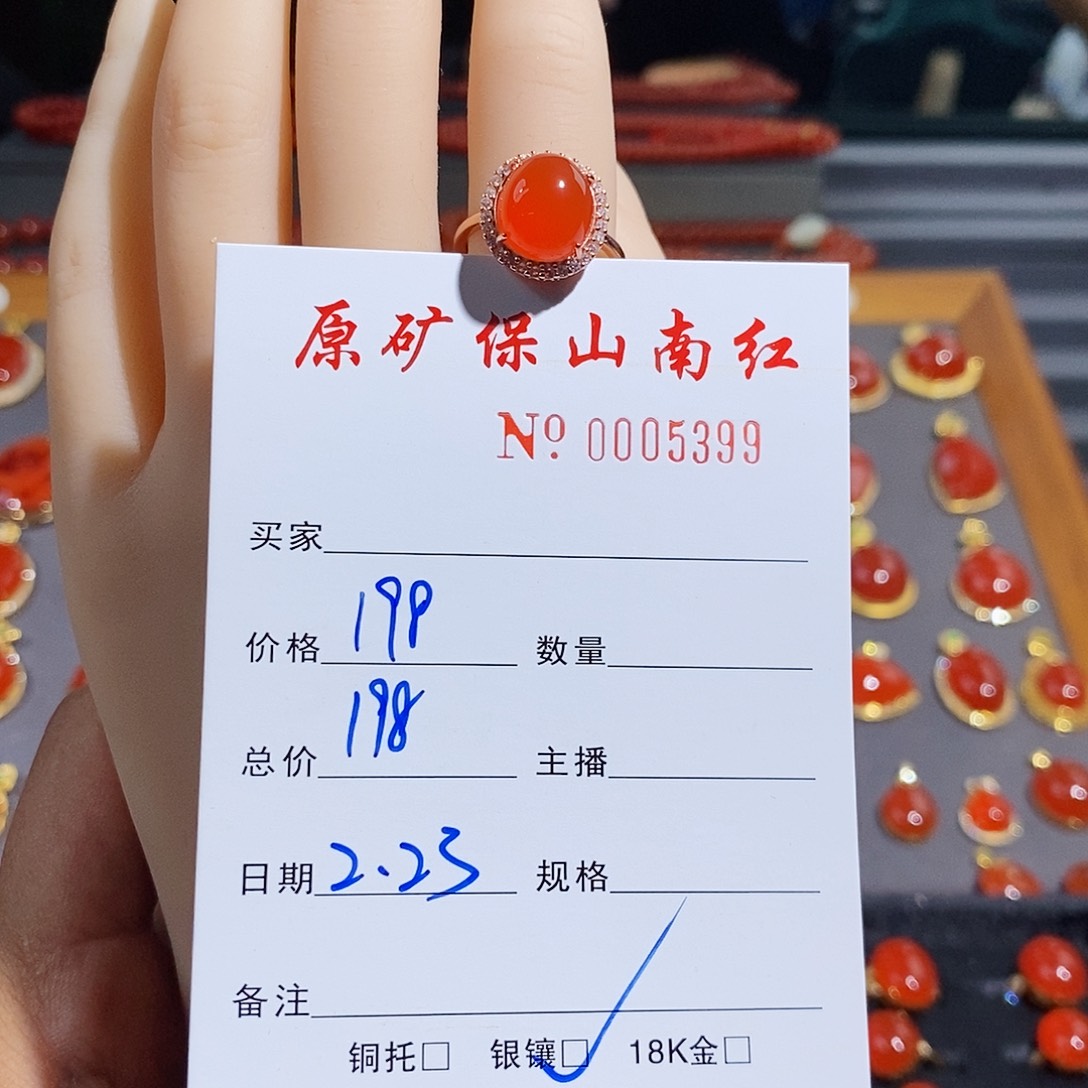 原矿保山南红
Nº 0005399
买家
价格 199 数量
总价 198 主播
日期 2.23 规格
备注
铜托□ 银镶□ 18K金□